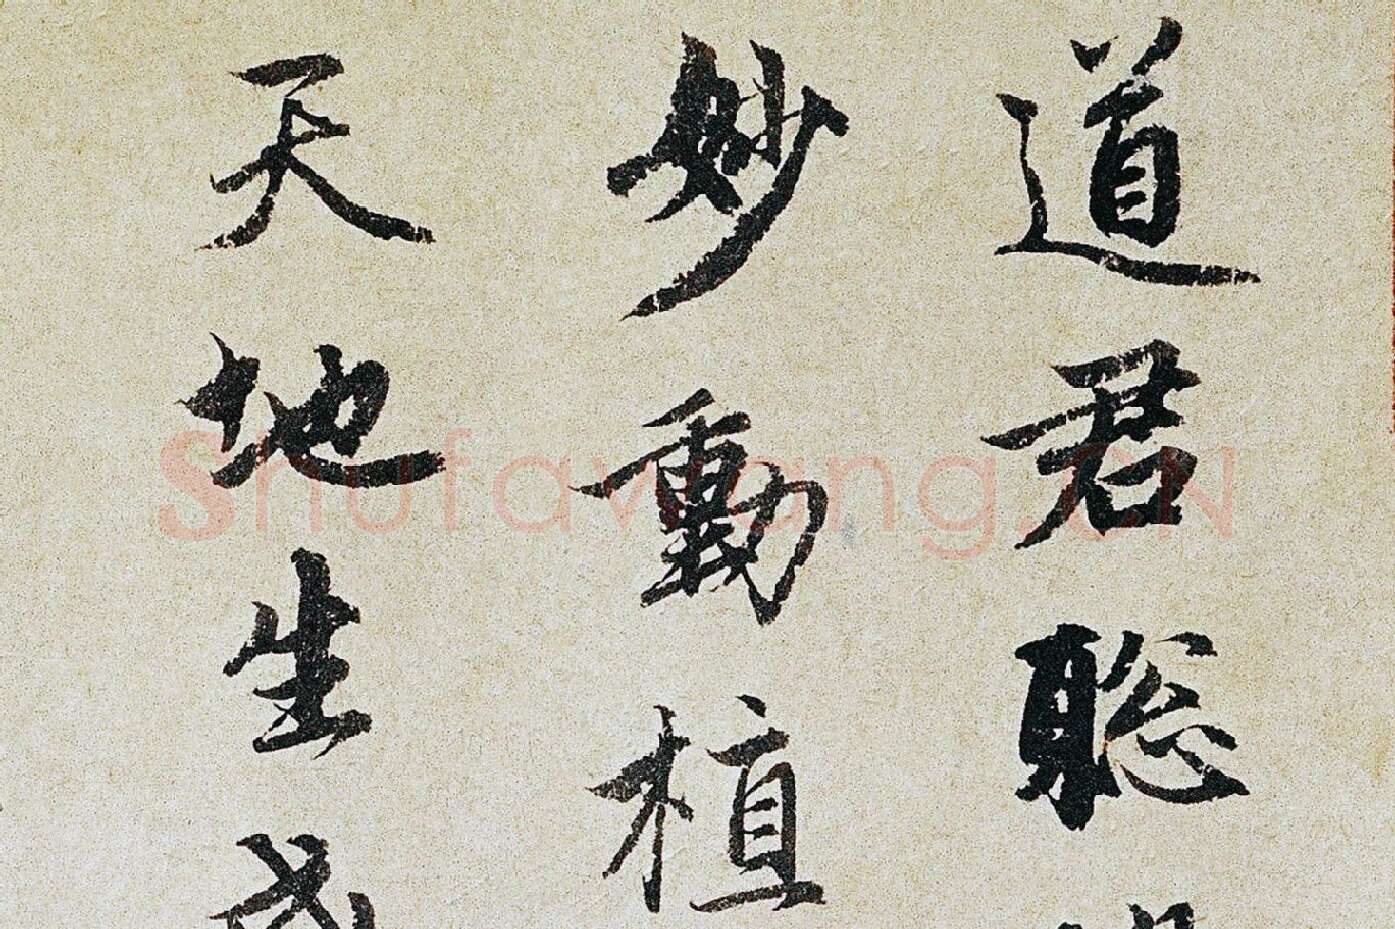 道君聡
妙動植
天地生成
Shufawang.CN